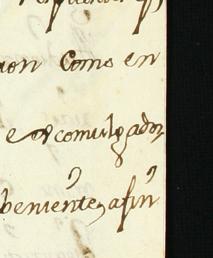 ron Como en
e excomulgador
beniente, afin